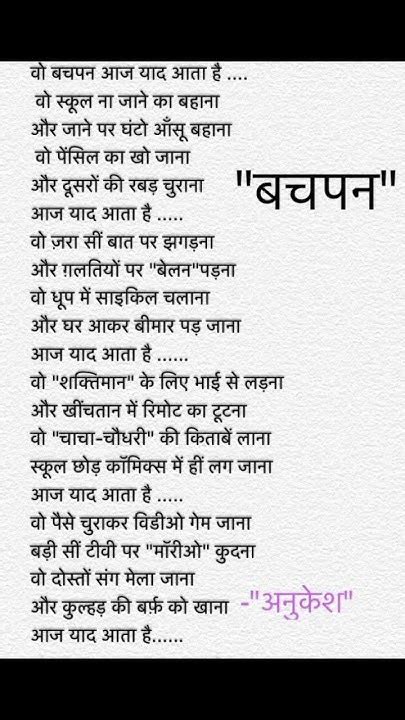 वो बचपन आज याद आता है ....
वो स्कूल ना जाने का बहाना
और जाने पर घंटो आँसू बहाना
वो पेंसिल का खो जाना
और दूसरों की रबड़ चुराना
"बचपन"
आज याद आता है .....
वो ज़रा सीं बात पर झगड़ना
और ग़लतियों पर "बेलन"पड़ना
वो धूप में साइकिल चलाना
और घर आकर बीमार पड़ जाना
आज याद आता है ......
वो "शक्तिमान" के लिए भाई से लड़ना
और खींचतान में रिमोट का टूटना
वो "चाचा-चौधरी" की किताबें लाना
स्कूल छोड़ कॉमिक्स में हीं लग जाना
आज याद आता है .....
वो पैसे चुराकर विडीओ गेम जाना
बड़ी सीं टीवी पर "मॉरीओ" कुदना
वो दोस्तों संग मेला जाना
और कुल्हड़ की बर्फ़ को खाना -"अनुकेश"
आज याद आता है......